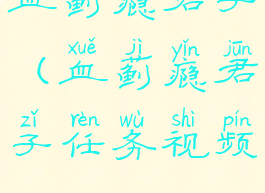 血蓟瘾君子
xuě jì yǐn jūn
（血蓟瘾君
zǐ rèn wù shì pín
子任务视频